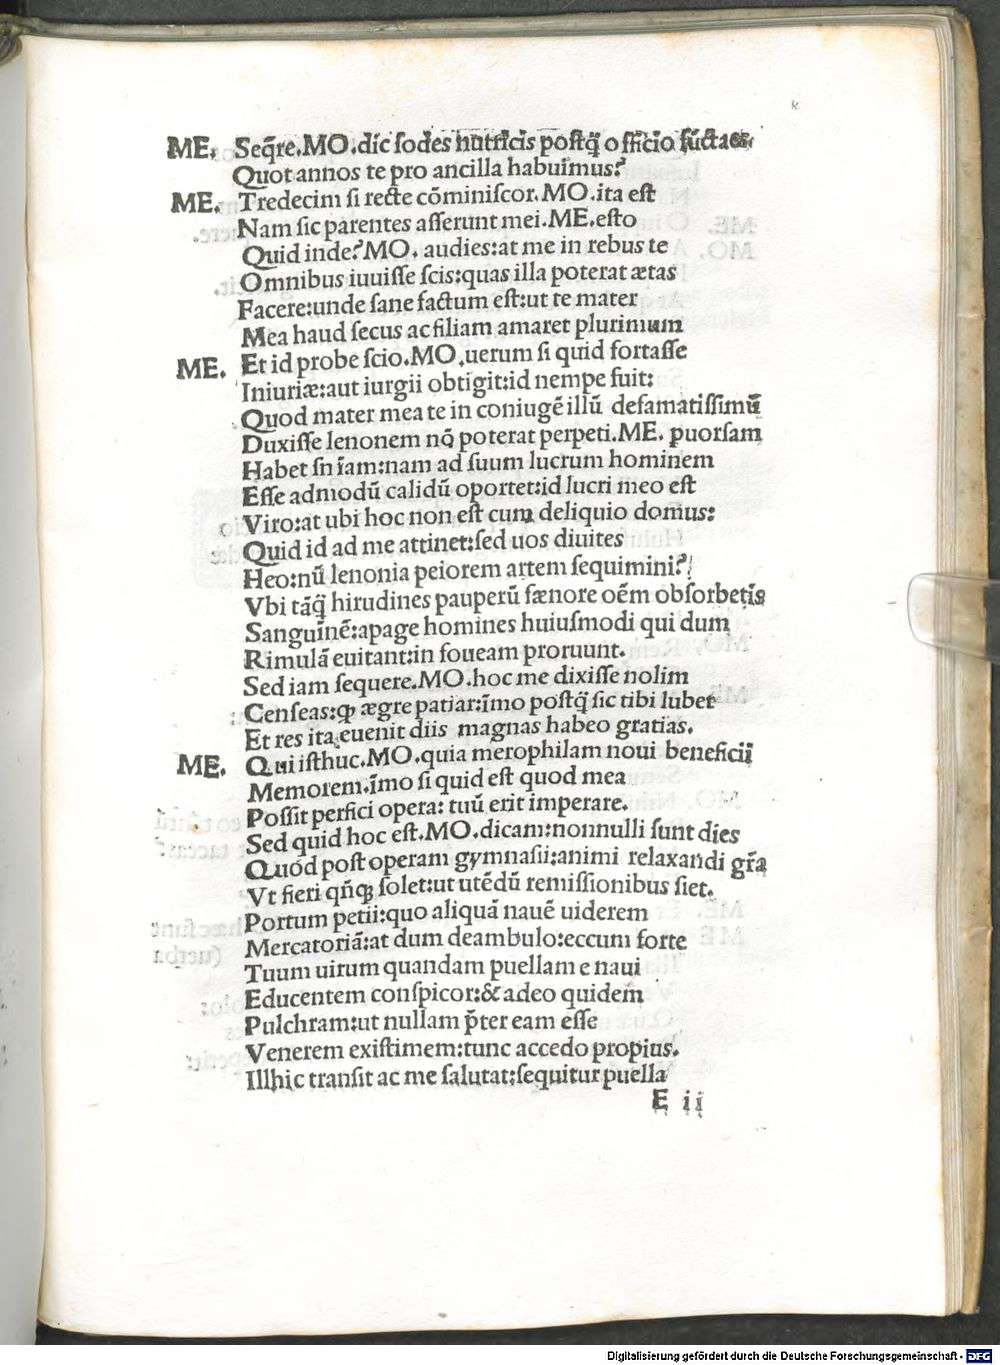 ME. Seqr̃e.MO.dic sodes nutricis postq̃ officio fũctaes.
Quot annos te pro ancilla habuimus?
ME. Tredecim si recte cõminiscor.MO.ita est
Nam sic parentes asserunt mei.ME.esto
Quid inde?MO. audies:at me in rebus te
Omnibus iuuisse scis:quas illa poterat ætas
Facere:unde sane factum est:ut te mater
Mea haud secus ac filiam amaret plurimum
ME. Et id probe scio.MO.uerum si quid fortasse
Iniuriæ:aut iurgii obtigit:id nempe fuit:
Quod mater mea te in coniugẽ illũ defamatissimũ
Duxisse lenonem nõ poterat perpeti.ME. puorsam
Habet sñ iam:nam ad suum lucrum hominem
Esse admodũ calidũ oportet:id lucri meo est
Viro:at ubi hoc non est cum deliquio domus:
Quid id ad me attinet:sed uos diuites
Heo:nũ lenonia peiorem artem sequimini?
Vbi tãq̃ hirudines pauperũ fænore oẽm obsorbetis
Sanguinẽ:apage homines huiusmodi qui dum
Rimulã euitant:in foueam proruunt.
Sed iam sequere.MO.hoc me dixisse nolim
Censeas:ꝙ ægre patiar:ĩmo postq̃ sic tibi lubet
Et res ita euenit diis magnas habeo gratias.
ME. Qui isthuc.MO.quia merophilam noui beneficii
Memorem.ĩmo si quid est quod mea
Possit perfici opera: tuũ erit imperare.
Sed quid hoc est.MO.dicam:nonnulli sunt dies
Quod post operam gymnasii:animi relaxandi gr̃a
Vt fieri qñqꝫ solet:ut utẽdũ remissionibus siet.
Portum petii:quo aliquã nauẽ uiderem
Mercatoriã:at dum deambulo:eccum forte
Tuum uirum quandam puellam e naui
Educentem conspicor:& adeo quidem
Pulchram:ut nullam p̃ter eam esse
Venerem existimem:tunc accedo propius.
Illhic transit ac me salutat:sequitur puella
E ii
Digitalisierung gefördert durch die Deutsche Forschungsgemeinschaft - DFG